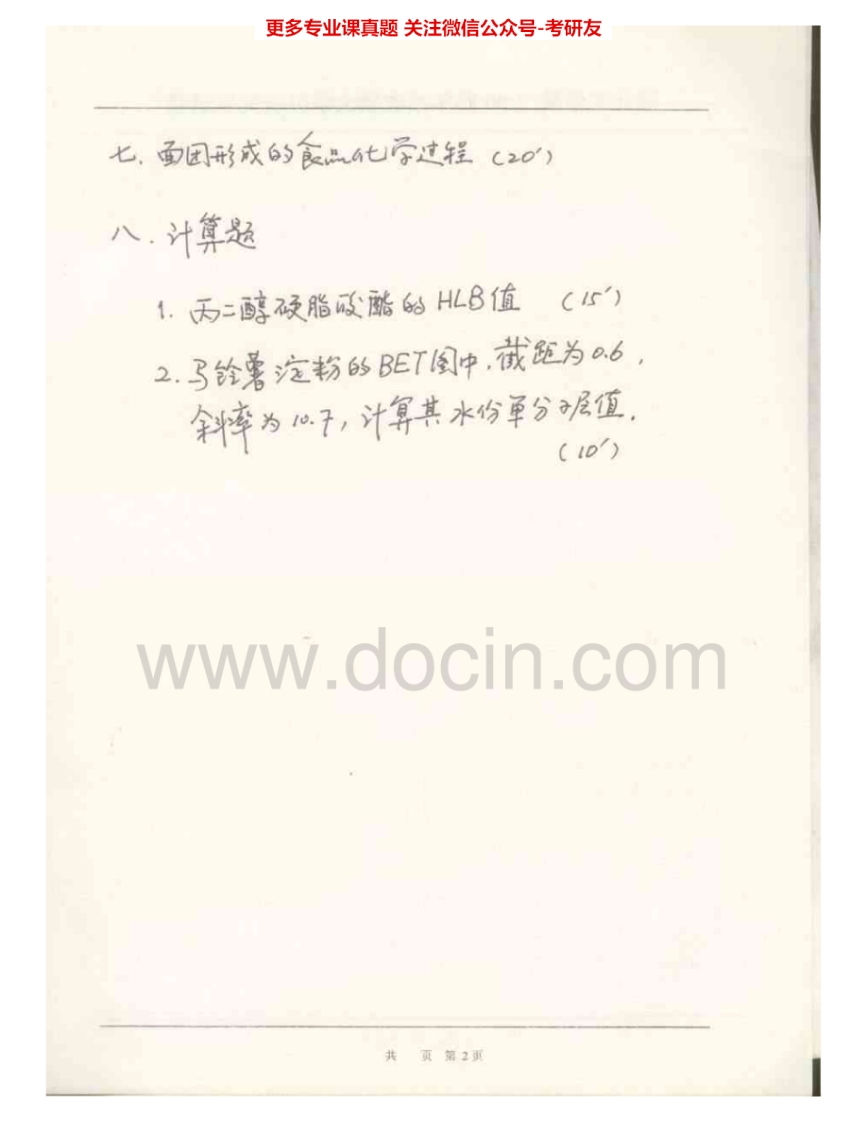 更多专业课真题 关注微信公众号-考研友
七、面团形成的食品化学过程 (20′)
八、计算题
1. 丙二醇硬脂酸酯的HLB值 (15′)
2. 马铃薯淀粉的BET图中,截距为0.6,
斜率为10.7,计算其水份单分子层值.
(10′)
www.docin.com
共 页 第2页